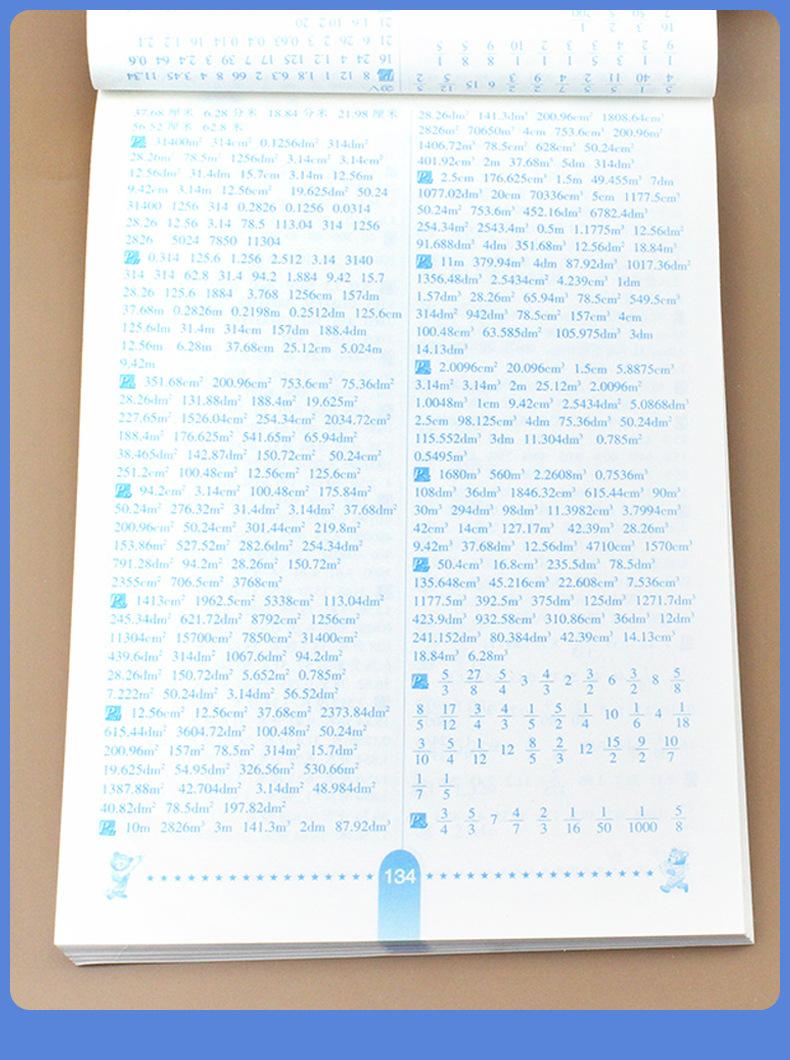 37.68 厘米 6.28 分米 18.84 分米 21.98 厘米
56.52 厘米 62.8 米
31400m² 314cm² 0.1256dm² 314dm²
28.26m² 78.5m² 1256dm² 3.14cm² 3.14cm²
12.56dm² 31.4dm 15.7cm 3.14m 12.56m
9.42cm 3.14m 12.56cm² 19.625dm² 50.24
31400 1256 314 0.2826 0.1256 0.0314
28.26 12.56 3.14 78.5 113.04 314 1256
2826 5024 7850 11304
0.314 125.6 1.256 2.512 3.14 3140
314 314 62.8 31.4 94.2 1.884 9.42 15.7
28.26 125.6 1884 3.768 1256cm 157dm
37.68m 0.2826m 0.2198m 0.2512dm 125.6cm
125.6dm 31.4m 314cm 157dm 188.4dm
12.56m 6.28m 37.68cm 25.12cm 5.024m
9.42m
351.68cm² 200.96cm² 753.6cm² 75.36dm²
28.26dm² 131.88dm² 188.4dm² 19.625m²
227.65m² 1526.04cm² 254.34cm² 2034.72cm²
188.4m² 176.625m² 541.65m² 65.94dm²
38.465dm² 142.87dm² 150.72cm² 50.24cm²
251.2cm² 100.48cm² 12.56cm² 125.6cm²
94.2cm² 3.14cm² 100.48cm² 175.84m²
50.24m² 276.32m² 31.4dm² 3.14dm² 37.68dm²
200.96cm² 50.24cm² 301.44cm² 219.8m²
153.86m² 527.52m² 282.6dm² 254.34dm²
791.28dm² 94.2m² 28.26m² 150.72m²
2355cm² 706.5cm² 3768cm²
1413cm² 1962.5cm² 5338cm² 113.04dm²
245.34dm² 621.72dm² 8792cm² 1256cm²
11304cm² 15700cm² 7850cm² 31400cm²
439.6dm² 314dm² 1067.6dm² 94.2dm²
28.26dm² 150.72dm² 5.652m² 0.785m²
7.222m² 50.24dm² 3.14dm² 56.52dm²
12.56cm² 12.56cm² 37.68cm² 2373.84dm²
615.44dm² 3604.72dm² 100.48m² 50.24m²
200.96m² 157m² 78.5m² 314m² 15.7dm²
19.625dm² 54.95dm² 326.56m² 530.66m²
1387.88m² 42.704dm² 3.14dm² 48.984dm²
40.82dm² 78.5dm² 197.82dm²
10m 2826m³ 3m 141.3m³ 2dm 87.92dm³
28.26dm³ 141.3dm³ 200.96cm² 1808.64cm³
2826m² 70650m³ 4cm 753.6cm³ 200.96m²
1406.72m³ 78.5cm² 628cm³ 50.24cm²
401.92cm³ 2m 37.68m³ 5dm 314dm³
2.5cm 176.625cm³ 1.5m 49.455m³ 7dm
1077.02dm³ 20cm 70336cm³ 5cm 1177.5cm³
50.24m² 753.6m³ 452.16dm² 6782.4dm³
254.34m² 2543.4m³ 0.5m 1.1775m³ 12.56dm²
91.688dm³ 4dm 351.68m³ 12.56dm² 18.84m³
11m 379.94m³ 4dm 87.92dm³ 1017.36dm²
1356.48dm³ 2.5434cm² 4.239cm³ 1dm
1.57dm³ 28.26m² 65.94m³ 78.5cm² 549.5cm³
314dm² 942dm³ 78.5cm² 157cm³ 4cm
100.48cm³ 63.585dm² 105.975dm³ 3dm
14.13dm³
2.0096cm² 20.096cm³ 1.5cm 5.8875cm³
3.14m² 3.14m³ 2m 25.12m³ 2.0096m²
1.0048m³ 1cm 9.42cm³ 2.5434dm² 5.0868dm³
2.5cm 98.125cm³ 4dm 75.36dm³ 50.24dm²
115.552dm³ 3dm 11.304dm³ 0.785m²
0.5495m³
1680m³ 560m³ 2.2608m³ 0.7536m³
108dm³ 36dm³ 1846.32cm³ 615.44cm³ 90m³
30m³ 294dm³ 98dm³ 11.3982cm³ 3.7994cm³
42cm³ 14cm³ 127.17m³ 42.39m³ 28.26m³
9.42m³ 37.68dm³ 12.56dm³ 4710cm³ 1570cm³
50.4cm³ 16.8cm³ 235.5dm³ 78.5dm³
135.648cm³ 45.216cm³ 22.608cm³ 7.536cm³
1177.5m³ 392.5m³ 375dm³ 125dm³ 1271.7dm³
423.9dm³ 932.58cm³ 310.86cm³ 36dm³ 12dm³
241.152dm³ 80.384dm³ 42.39cm³ 14.13cm³
18.84m³ 6.28m³
5/3 27/8 5/4 3 4/3 2 3/2 6 3/2 8 5/8
8/5 17/12 3/4 4/3 1/5 5/2 1/4 10 1/6 4 1/18
3/10 5/4 1/12 12 8/5 2/3 12 15/2 9/2 10/7
1/7 1/5
3/4 5/3 7 4/7 2/3 1/16 1/50 1/1000 5/8
134